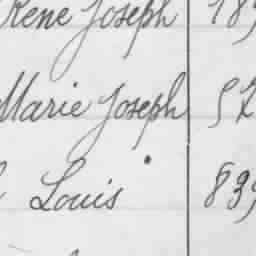 René Joseph 189
Marie Joseph 57
Louis 839